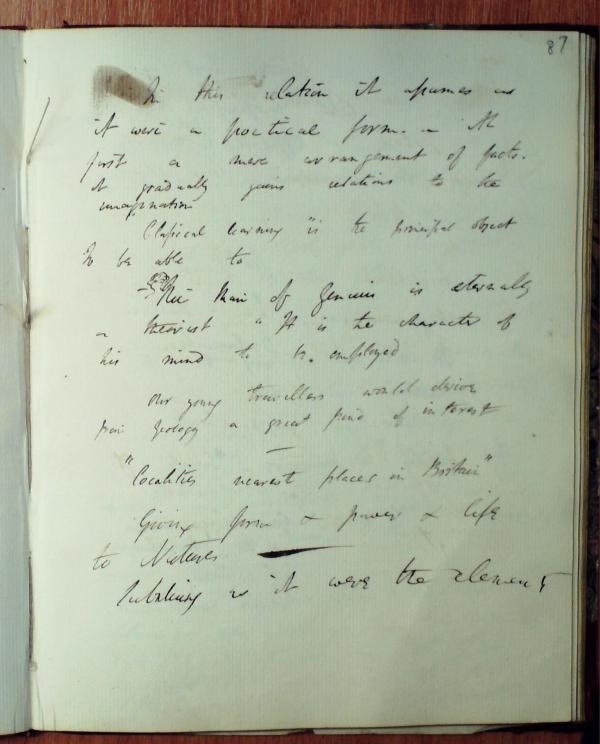 87
In this relation it assumes as
it were a poetical form. - At
first a mere arrangement of facts.
it gradually gains relations to the
imagination
Classical learning "is the principal object
To be able to
The Man of Genius is eternally
a theorist "It is the character of
his mind to be employed
Our young travellers would derive
from geology a great fund of interest
"Localities nearest places in Britain"
Giving form & power & life
to Natures
as it were the element